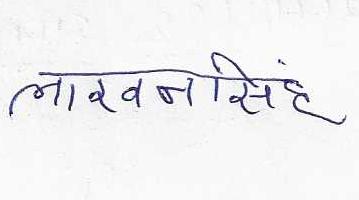 लाखनसिंह